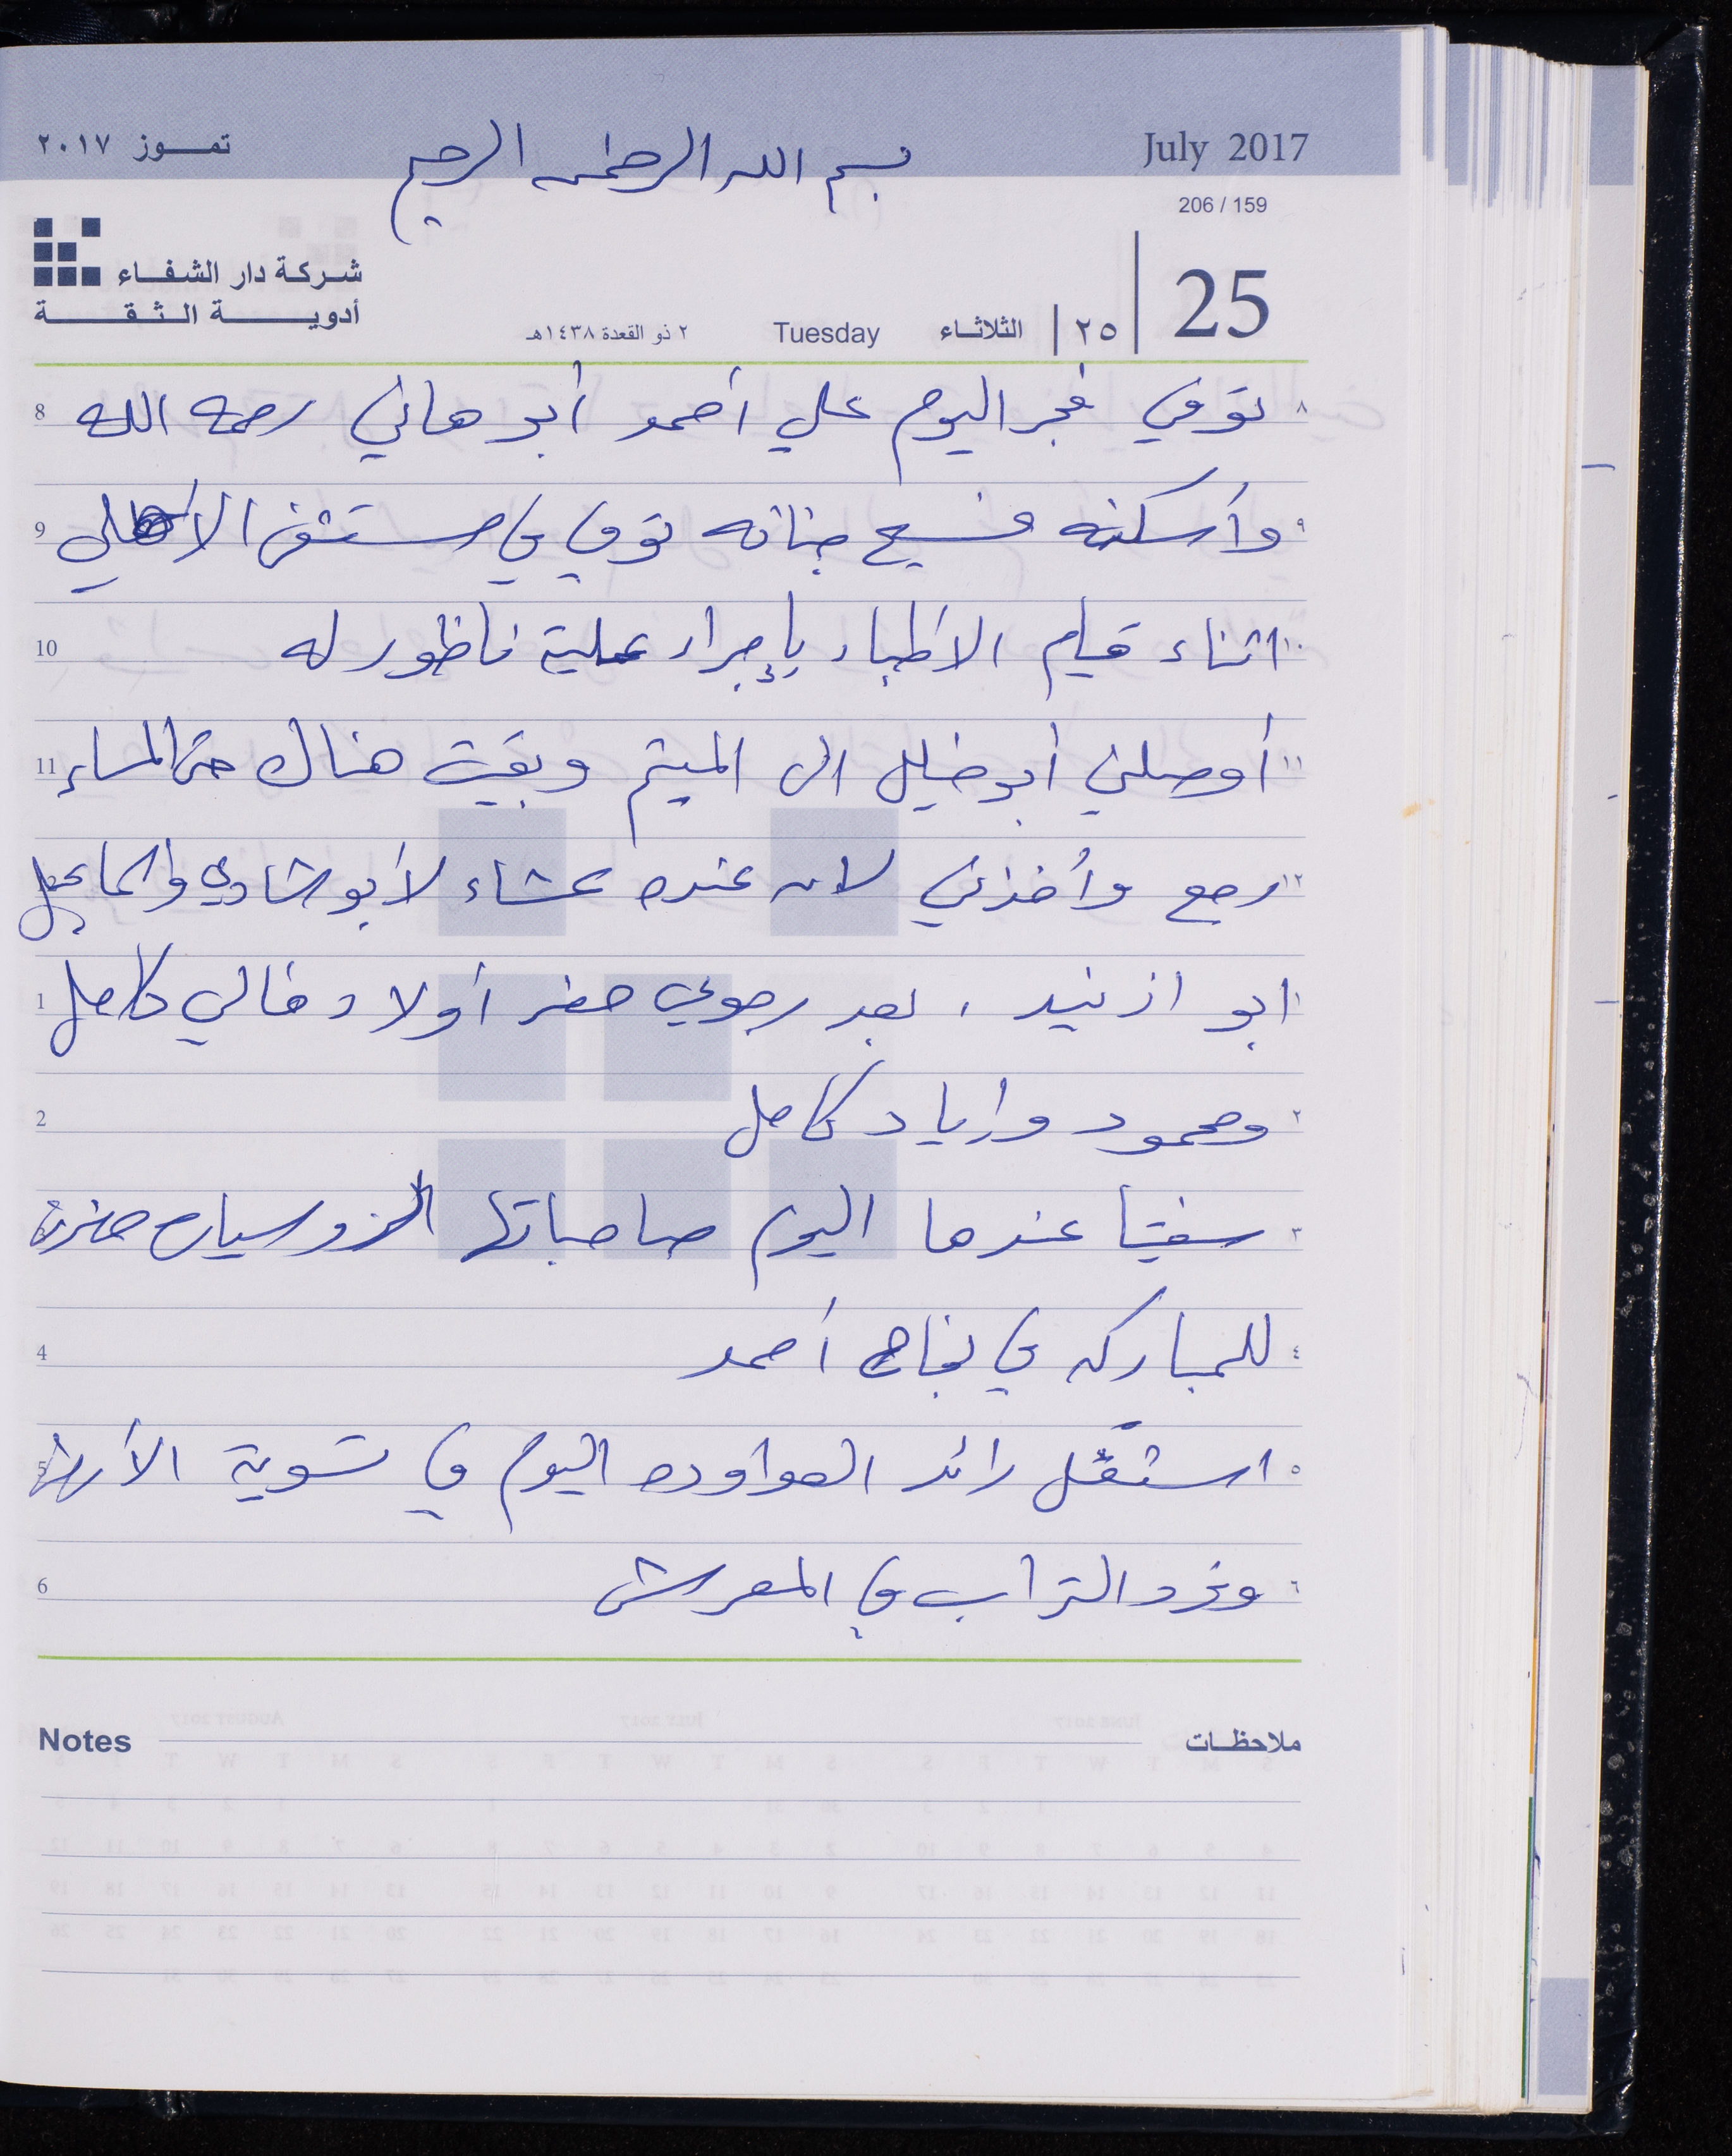 July 2017
تموز ٢٠١٧
بسم الله الرحمن الرحيم
206 / 159
شركة دار الشفاء
أدوية الثقة
25 ٢٥ الثلاثاء Tuesday ٢ ذو القعدة ١٤٣٨هـ
٨ توفي فجر اليوم علي أحمد أبو هاني رحمه الله 8
٩ وأسكنه فسيح جنانه توفي في مستشفى الاهلي 9
١٠ اثناء قيام الاطباء بإجراء عملية ناظور له 10
١١ أوصلني أبو خليل الى الميتم وبقيت هناك حتى المساء 11
١٢ رجع وأخذني لان عنده عشاء لأبو شادي واسماعيل
١ ابو ازنيد ، بعد رجوعي حضر أولاد خالي كامل 1
٢ محمود واياد كامل 2
٣ سفيتا عندها اليوم صاحباتها الروسيات حضرن
٤ للمباركه في نجاح أحمد 4
٥ استغل رائد العواوده اليوم في تسوية الأرض 5
٦ وفرد التراب في المعرش 6
Notes ملاحظات